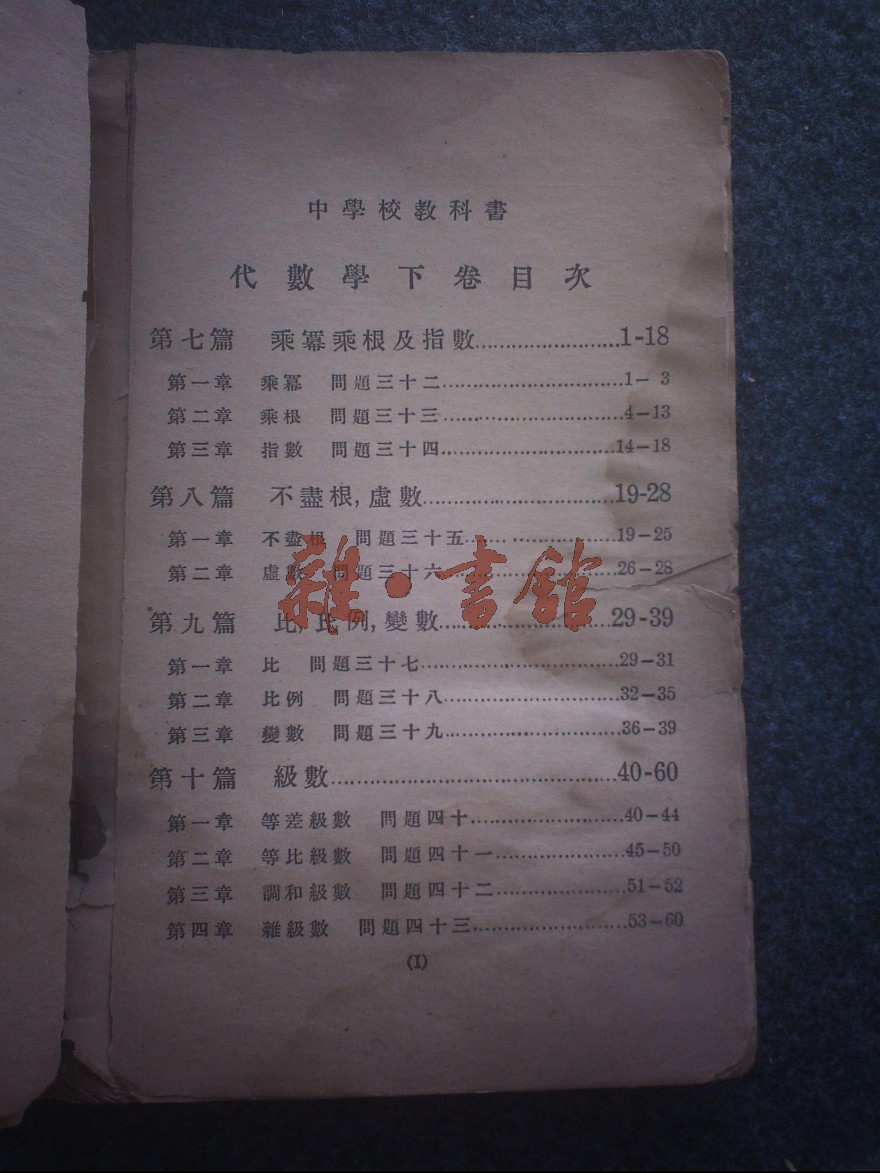 中學校教科書
代數學下卷目次
第七篇 乘冪乘根及指數......................1-18
第一章 乘冪 問題三十二..............................1- 3
第二章 乘根 問題三十三..............................4-13
第三章 指數 問題三十四..............................14-18
第八篇 不盡根,虛數..............................19-28
第一章 不盡根 問題三十五..............................19-25
第二章 虛數 問題三十六..............................26-28
雜·書館
第九篇 比,比例,變數..............................29-39
第一章 比 問題三十七..............................29-31
第二章 比例 問題三十八..............................32-35
第三章 變數 問題三十九..............................36-39
第十篇 級數..............................40-60
第一章 等差級數 問題四十..............................40-44
第二章 等比級數 問題四十一..............................45-50
第三章 調和級數 問題四十二..............................51-52
第四章 雜級數 問題四十三..............................53-60
(I)